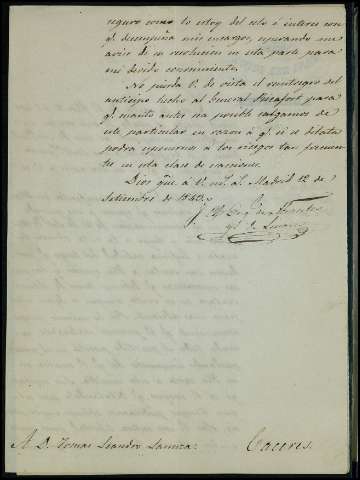 seguro como lo estoy del celo é interes con
q.e desempeña mis encargos, esperando me
avise de su resolucion en esta parte para
mi debido conocimiento.
No pierda V. de vista el reintegro del
anticipo hecho al General para
q.e cuanto antes sea posible salgamos de
este particular en razon á q.e si se dilata
podra esponernos á los riesgos tan frecuen
tes en esta clase de
Dios gue. á V. m.s a.s Madrid 12 de
Setiembre de 1840.
A D. Tomas Leandro
Caceres.